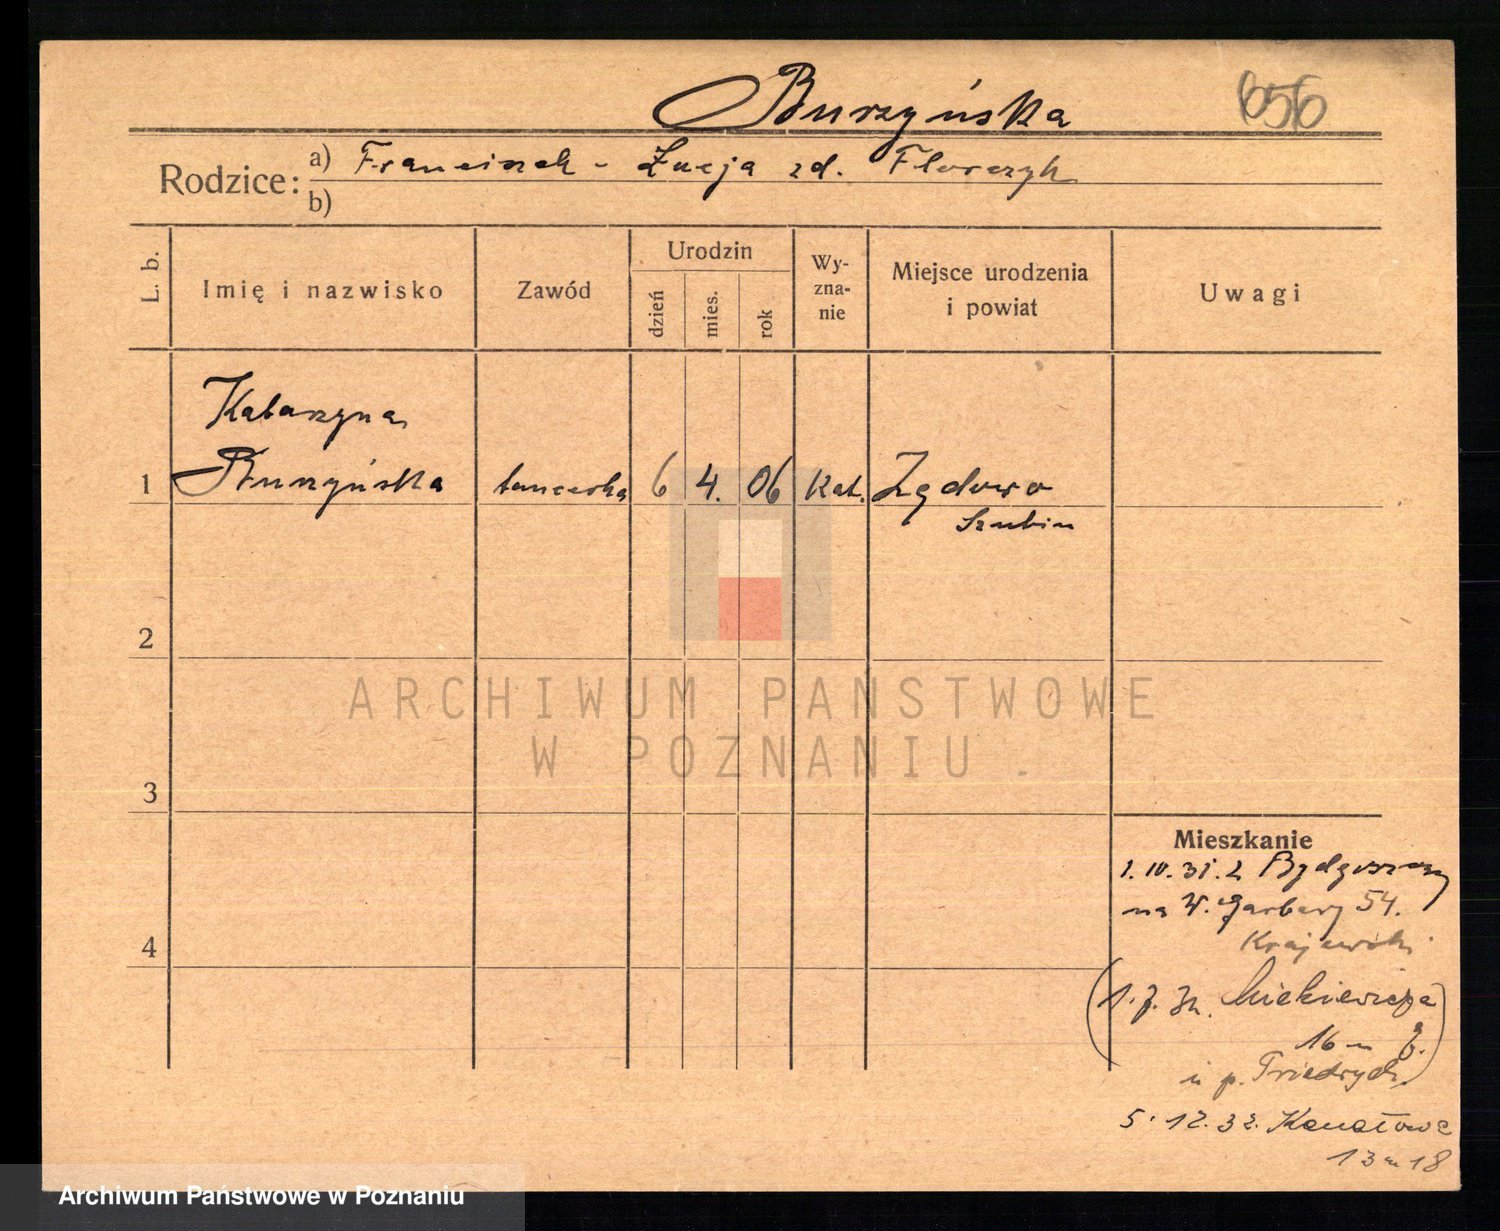 Burzyńska
656
Rodzice: a) Franciszek - Łucja zd. Florczyk
b)
L. b.
Imię i nazwisko
Zawód
Urodzin
dzień
mies.
rok
Wy-
zna-
nie
Miejsce urodzenia
i powiat
Uwagi
Katarzyna
1 Burzyńska tancerka 6 4. 06 kat. Zędowo
Szubin
2
3
4
ARCHIWUM PANSTWOWE
W POZNANIU.
Mieszkanie
1. IV. 31. z Bydgoszczy
na W. Garbary 54.
Krajewski
(1. 7. 32. Mickiewicza
16 m
u p. Friedrych)
5. 12. 32. Kanałowa
13 m 18
Archiwum Państwowe w Poznaniu